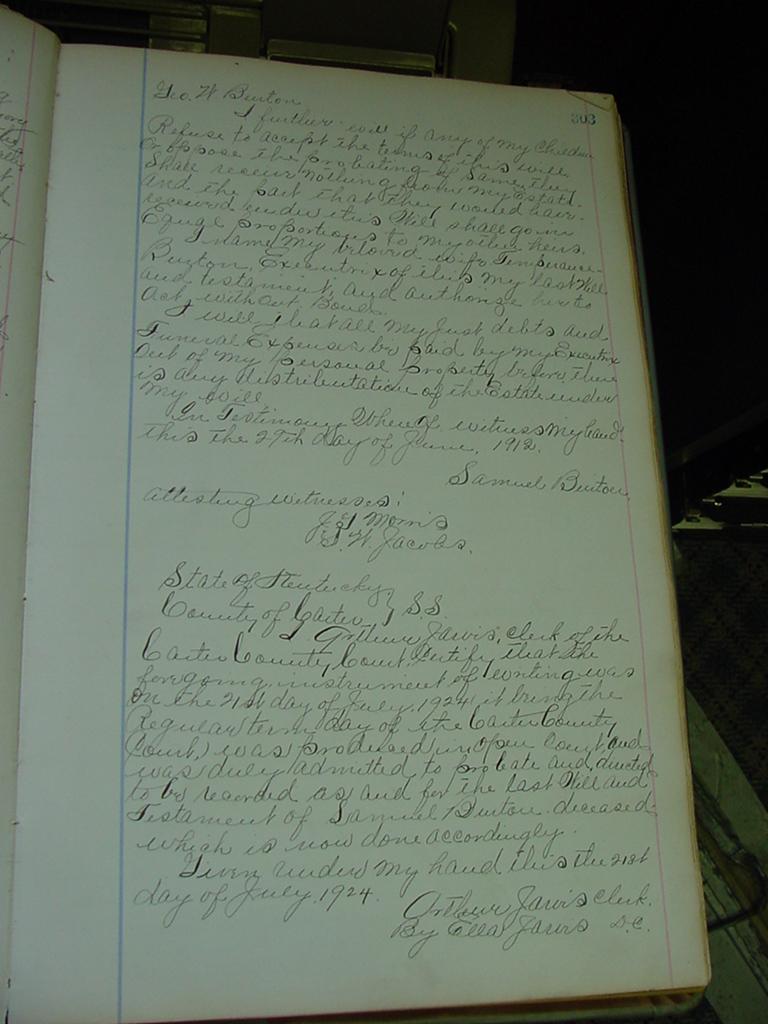 303
Geo. W Burton
I further will if any of my Children
Refuse to accept the terms of this will
Or oppose the probating of Same, they
Shall receive nothing from my Estate
and the part that they would have
received under this Will shall go in
Equal proportions to my other heirs.
I name my beloved wife Temperance
Burton, Executrix of this my last Will
and testament, and authorize her to
Act, without Bond.
I will that all my Just debts and
Funeral Expenses be paid by my Executrix
Out of my personal property before there
is any distributation of the Estate under
my will
In Testimony Whereof witness my hand
this the 27th day of June, 1912.
Samuel Burton
Attesting witnesses:
Morris
W Jacobs.
State of Kentucky
County of Carter } SS
I Arthur Jarvis, clerk of the
Carter County Court, Certify that the
foregoing instrument of writing was
On the 21st day of July, 1924, it being the
Regular term day of the Carter County
Court, was produced in open Court and
was duly admitted to probate and directed
to be recorded as and for the last Will and
Testament of Samuel Burton deceased
which is now done accordingly.
Given under my hand this the 21st
day of July 1924.
Arthur Jarvis clerk.
By Ella Jarvis D.C.